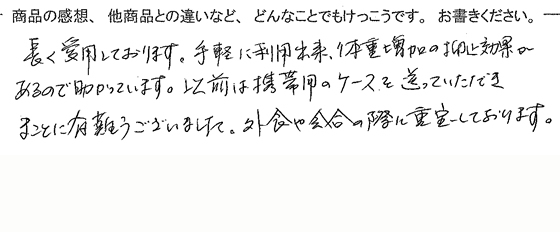 商品の感想、他商品との違いなど、どんなことでもけっこうです。お書きください。
長く愛用しております。手軽に利用出来、体重増加の抑止効果が
あるので助かっています。以前は携帯用のケースを送っていただき
まことに有難うございました。外食や会合の際に重宝しております。